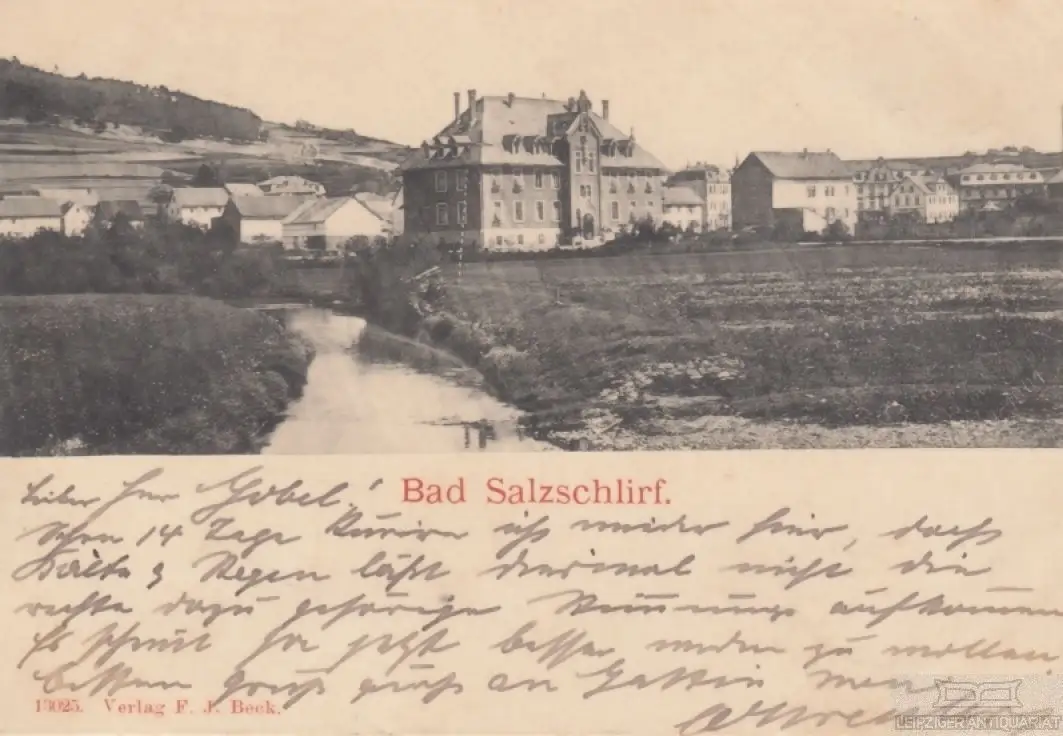 Bad Salzschlirf.
Lieber Herr Göbel!
Schon 14 Tage kurire ich wieder hier, doch
Kälte & Regen läßt diesmal nicht die
rechte dazu gehörige Stimmung aufkommen
Es scheint ja jetzt besser werden zu wollen.
Besten Gruß auch an Gattin
13025. Verlag F. J. Beck.
LEIPZIGER ANTIQUARIAT